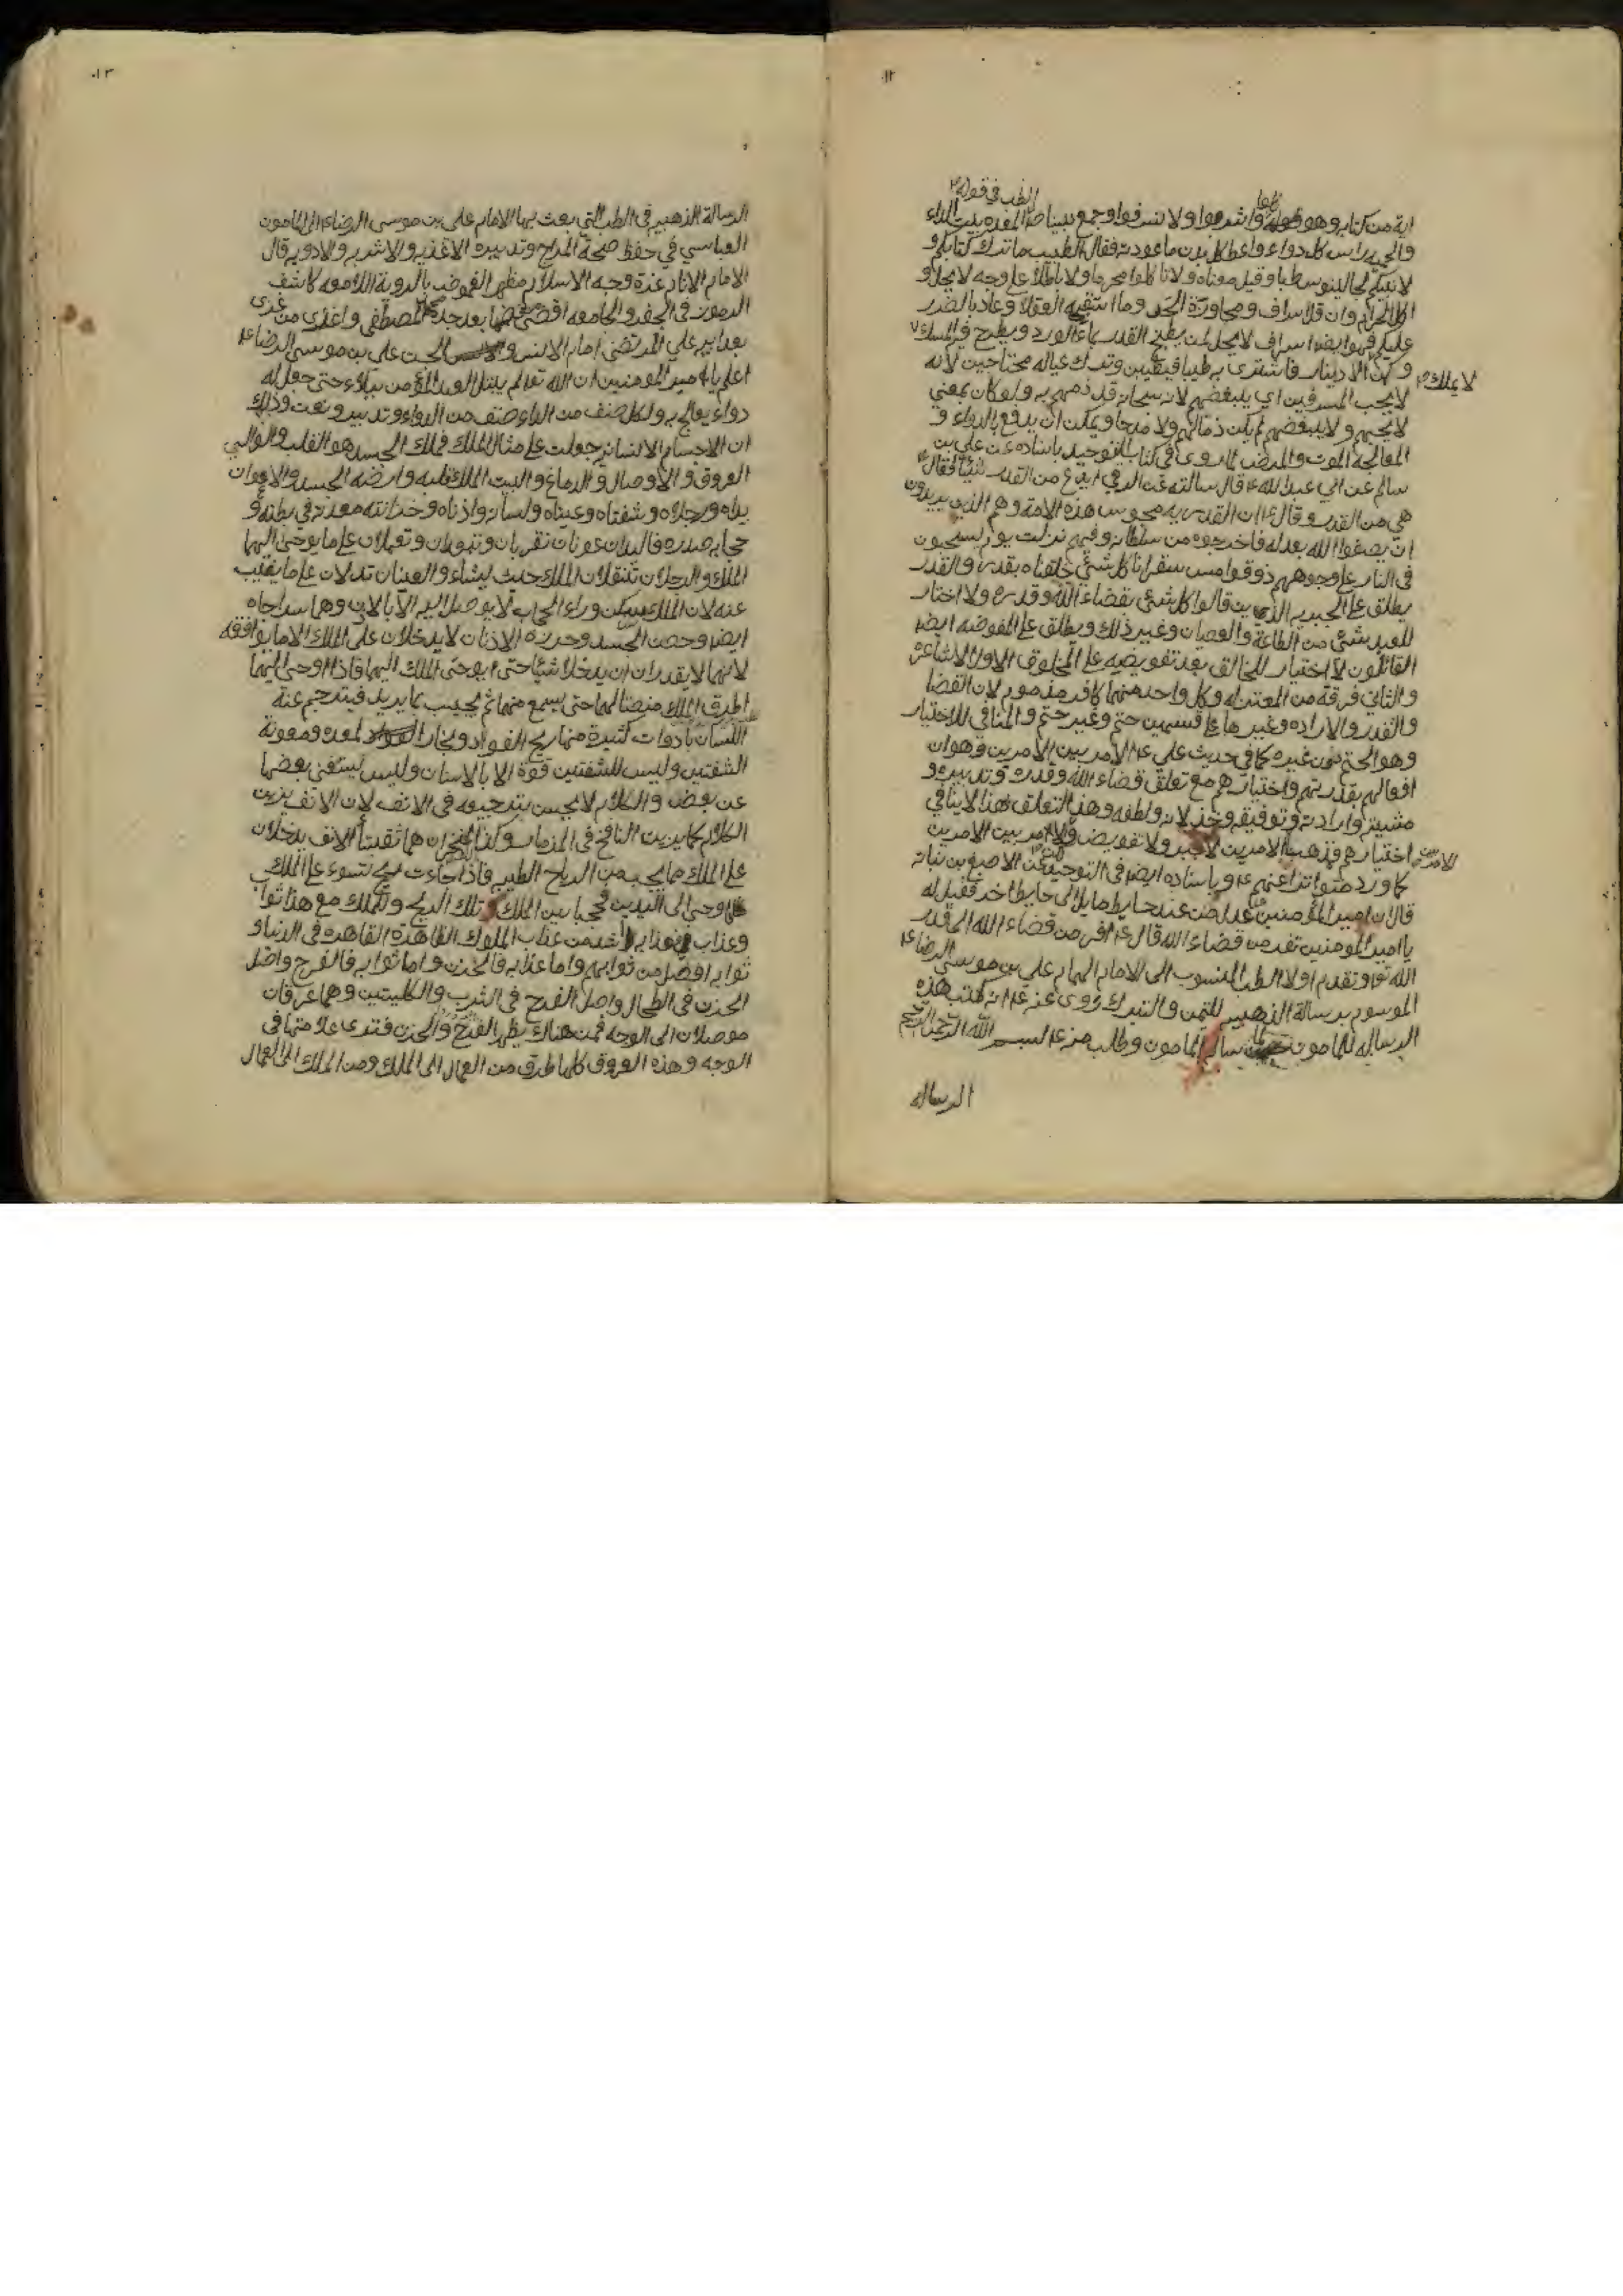 ١٢
الطب في قوله
اية من كتابه وهو قوله كلوا واشربوا ولا تسرفوا وجمع نبينا المعدة بيت الداء
والحمية راس كل دواء واعط كل بدن ما عودته فقال الطبيب ما ترك كتابكم و
لا نبيكم لجالينوس طبا وقيل معناه ولا تاكلوا محرما ولا باطلا على وجه لا يحل و
اكل الحرام وان قل اسراف ومجاوزة الحد وما استقبحه العقلاء وعاد بالضرر
عليكم فهو ايضا اسراف لا يحل لمن يطبخ القدر بماء الورد ويطرح فيها المسك
لا يملك
وكمن الا دينار فاشترى به طيبا فتطيب وترك عياله محتاجين لانه
لا يحب المسرفين اي يبغضهم لانه سبحانه قد ذمهم به ولو كان بمعنى
لا يحبهم ولا يبغضهم لم يكن ذما لهم ولا مدحا ويمكن ان يدفع بالدواء و
المعالجة الموت والمرض لما روى في كتاب التوحيد باسناده عن علي بن
سالم عن ابي عبد الله ع قال سالته عن الرقى اتدفع من القدر شيئا فقال
هي من القدر وقال ع ان القدرية مجوس هذه الامة وهم الذين يريدون
ان يصفوا الله بعدله فاخرجوه من سلطانه وفيهم نزلت يوم يسحبون
في النار على وجوههم ذوقوا مس سقر انا كل شئ خلقناه بقدر والقدر
يطلق على الجبريه الذين قالوا كل شئ بقضاء الله وقدره ولا اختيار
للعبد بشئ من الطاعة والعصيان وغير ذلك ويطلق على المفوضه ايضا
القائلون لا اختيار للخالق بعد تفويضه على المخلوق الاول الاشاعرة
والثاني فرقة من المعتزله وكل واحد منهما كافر مذموم لان القضا
والقدر والاراده وغيرها على قسمين حتم وغير حتم والمنافي للاختيار
وهو الحتم دون غيره كما في حديث علي ع الامر بين الامرين وهو ان
افعالهم بقدرتهم واختيارهم مع تعلق قضاء الله وقدره وتدبيره و
مشيته وارادته وتوفيقه وخذلانه ولطفه وهذا التعلق هذا لا ينافي
اختيارهم فذهب الامرين لا جبر ولا تفويض والامر بين الامرين
كما ورد متواترا عنهم ع وباسناده ايضا في التوحيد عن الاصبغ بن نباتة
قال ان امير المؤمنين عدل من عند حايط مايل الى حايط اخر فقيل له
يا امير المومنين تفر من قضاء الله قال ع افر من قضاء الله الى قدر
الله تعا وتقدم اولا الطب المنسوب الى الامام الهمام علي بن موسى الرضا ع
الموسوم برسالة الذهبيه للتيمن والتبرك روى عنه ع انه كتب هذه
الرساله للمامون لما سال المامون وطلب منه ع بسم الله الرحمن الرحيم
الرساله
١٣
الرسالة الذهبيه في الطب التي بعث بها الامام علي بن موسى الرضا ع الى المامون
العباسي في حفظ صحة المزاج وتدبيره الاغذيه والاشربه والادويه قال
الامام الانام غرة وجه الاسلام مظهر الغموض بالروية اللامعه كاشف
الرموز في الجفر والجامعه اقضى من قضى بعد جده محمد المصطفى واغزى من غزى
بعد ابيه علي المرتضى امام الانس والجن علي بن موسى الرضا ع
اعلم يا امير المومنين ان الله تعالى لم يبتل العبد المؤمن ببلاء حتى جعل له
دواء يعالج به ولكل صنف من الداء صنف من الدواء وتدبير ونعت وذلك
ان الاجسام الانسانيه جعلت على مثال الملك فملك الجسد هو القلب والعمال
العروق والاوصال والدماغ والبيت الملك قلبه وارضه الجسد والاعوان
يداه ورجلاه وشفتاه وعيناه ولسانه واذناه وخزانته معدته في بطنه و
حجابه صدره فاليدان عونان تقربان وتبعدان وتعملان على ما يوحى اليهما
الملك والرجلان تنقلان الملك حيث يشاء والعينان تدلان على ما يغيب
عنه لان الملك يسكن وراء الحجاب لا يوصل اليه الا بالاذن وهما سراجاه
ايضا وحصن الجسد وحرزه الاذنان لا يدخلان على الملك الا ما يوافقه
لانهما لا يقدران ان يدخلا شيئا حتى يوحى الملك اليهما فاذا اوحى اليهما
اطرق الملك منصتا لهما حتى يسمع منهما ثم يجيب بما يريد فيترجم عنه
اللسان بادوات كثيرة منها ريح الفواد وبخار المعده ومعونة
الشفتين وليس للشفتين قوة الا بالاسنان وليس يستغنى بعضها
عن بعض والكلام لا يحسن بترجيعه في الانف لان الانف يزين
الكلام كما يزين النافخ في المزمار وكذا المنخران هما ثقبتا الانف يدخلان
على الملك مما يحب من الرياح الطيبه فاذا جاءت ريح تسوء على الملك
اوحى الى اليدين فحجبا بين الملك وتلك الريح وللملك مع هذا ثواب
وعذاب فعذابه اشد من عذاب الملوك القاهرة في الدنيا و
ثوابه افضل من ثوابهم واما عذابه فالحزن واما ثوابه فالفرح واصل
الحزن في الطحال واصل الفرح في الثرب والكليتين وهما عرقان
موصلان الى الوجه فمن هناك يظهر الفرح والحزن فترى علامتهما في
الوجه وهذه العروق كلها طرق من العمال الى الملك ومن الملك الى العمال